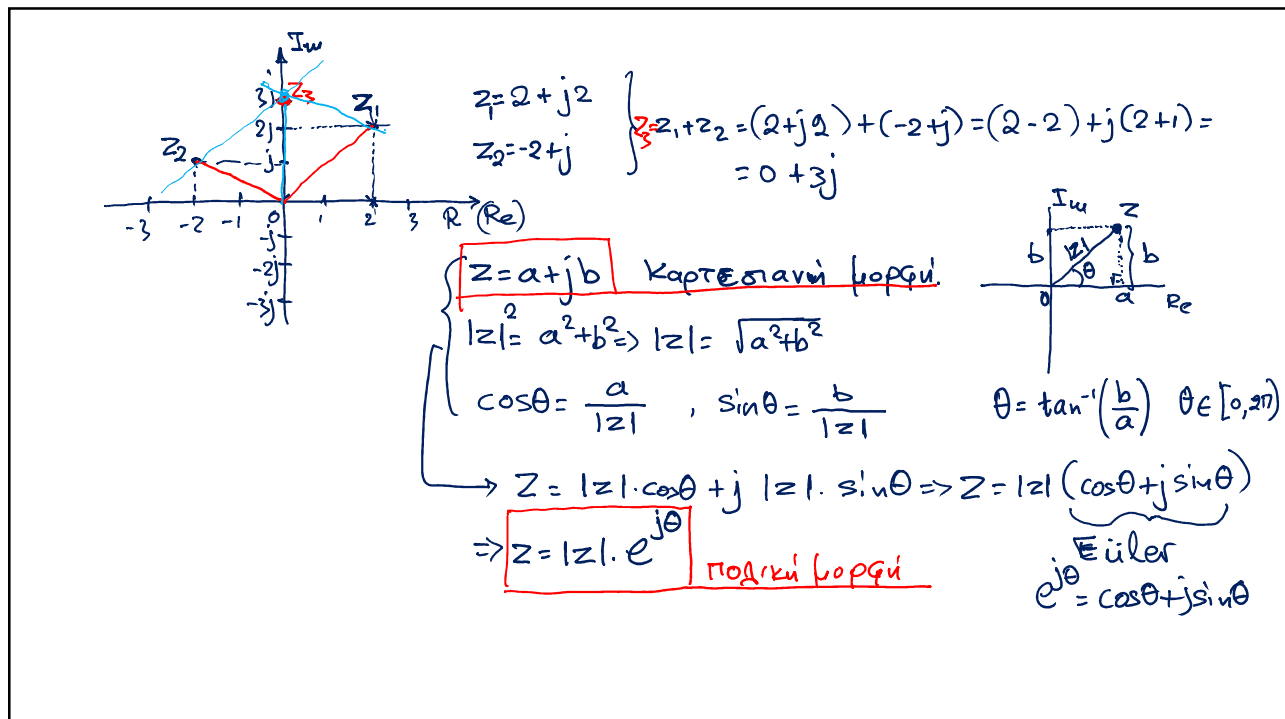 Im
3j
Z₃
Z₁
2j
Z₂
j
-3 -2 -1 0 1 2 3 R (Re)
-j
-2j
-3j
z₁=2+j2
z₂=-2+j
z₃=z₁+z₂=(2+j2)+(-2+j)=(2-2)+j(2+1)=
=0+3j
Im
z
b |z| b
θ
0 a Re
z=a+jb καρτεσιανή μορφή.
|z|²= a²+b² => |z|= √(a²+b²)
cosθ= a/|z| , sinθ= b/|z|
θ=tan⁻¹(b/a) θ∈[0,2π)
→ z=|z|·cosθ+j |z|·sinθ => z=|z|(cosθ+j sinθ)
=> z=|z|·e^{jθ} πολική μορφή
Eüler
e^{jθ}=cosθ+jsinθ